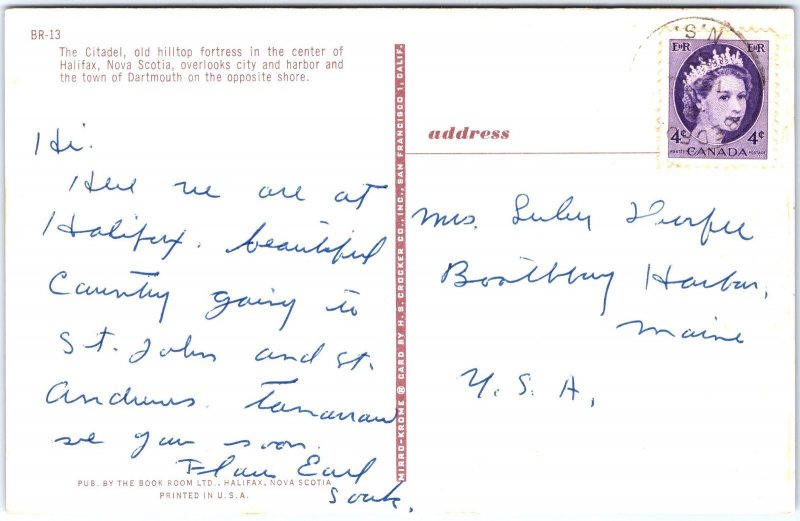 BR-13
The Citadel, old hilltop fortress in the center of
Halifax, Nova Scotia, overlooks city and harbor and
the town of Dartmouth on the opposite shore.
Hi.
Here we are at
Halifax. beautiful
Country going to
St. John and St.
Andrews. Tomorrow
see you soon.
Earl
PUB. BY THE BOOK ROOM LTD., HALIFAX, NOVA SCOTIA
PRINTED IN U.S.A.
MIRRO-KROME ® CARD BY H. S. CROCKER CO., INC., SAN FRANCISCO 1, CALIF.
address
N.S.
EIIR EIIR
4¢ 4¢
POSTES CANADA POSTAGE
Mrs.
Boothbay Harbor,
Maine
U.S.A.